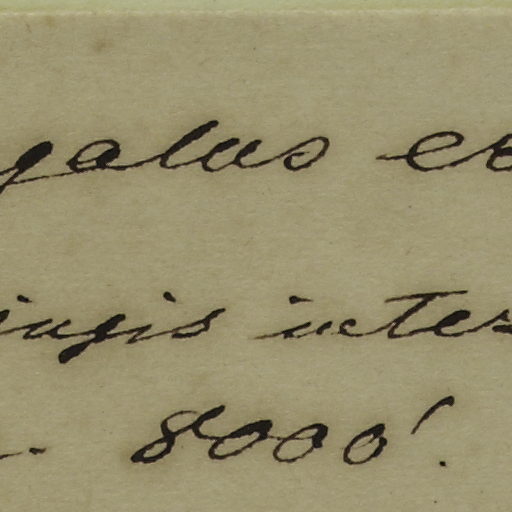 galus ex
iugis inter
8000'.